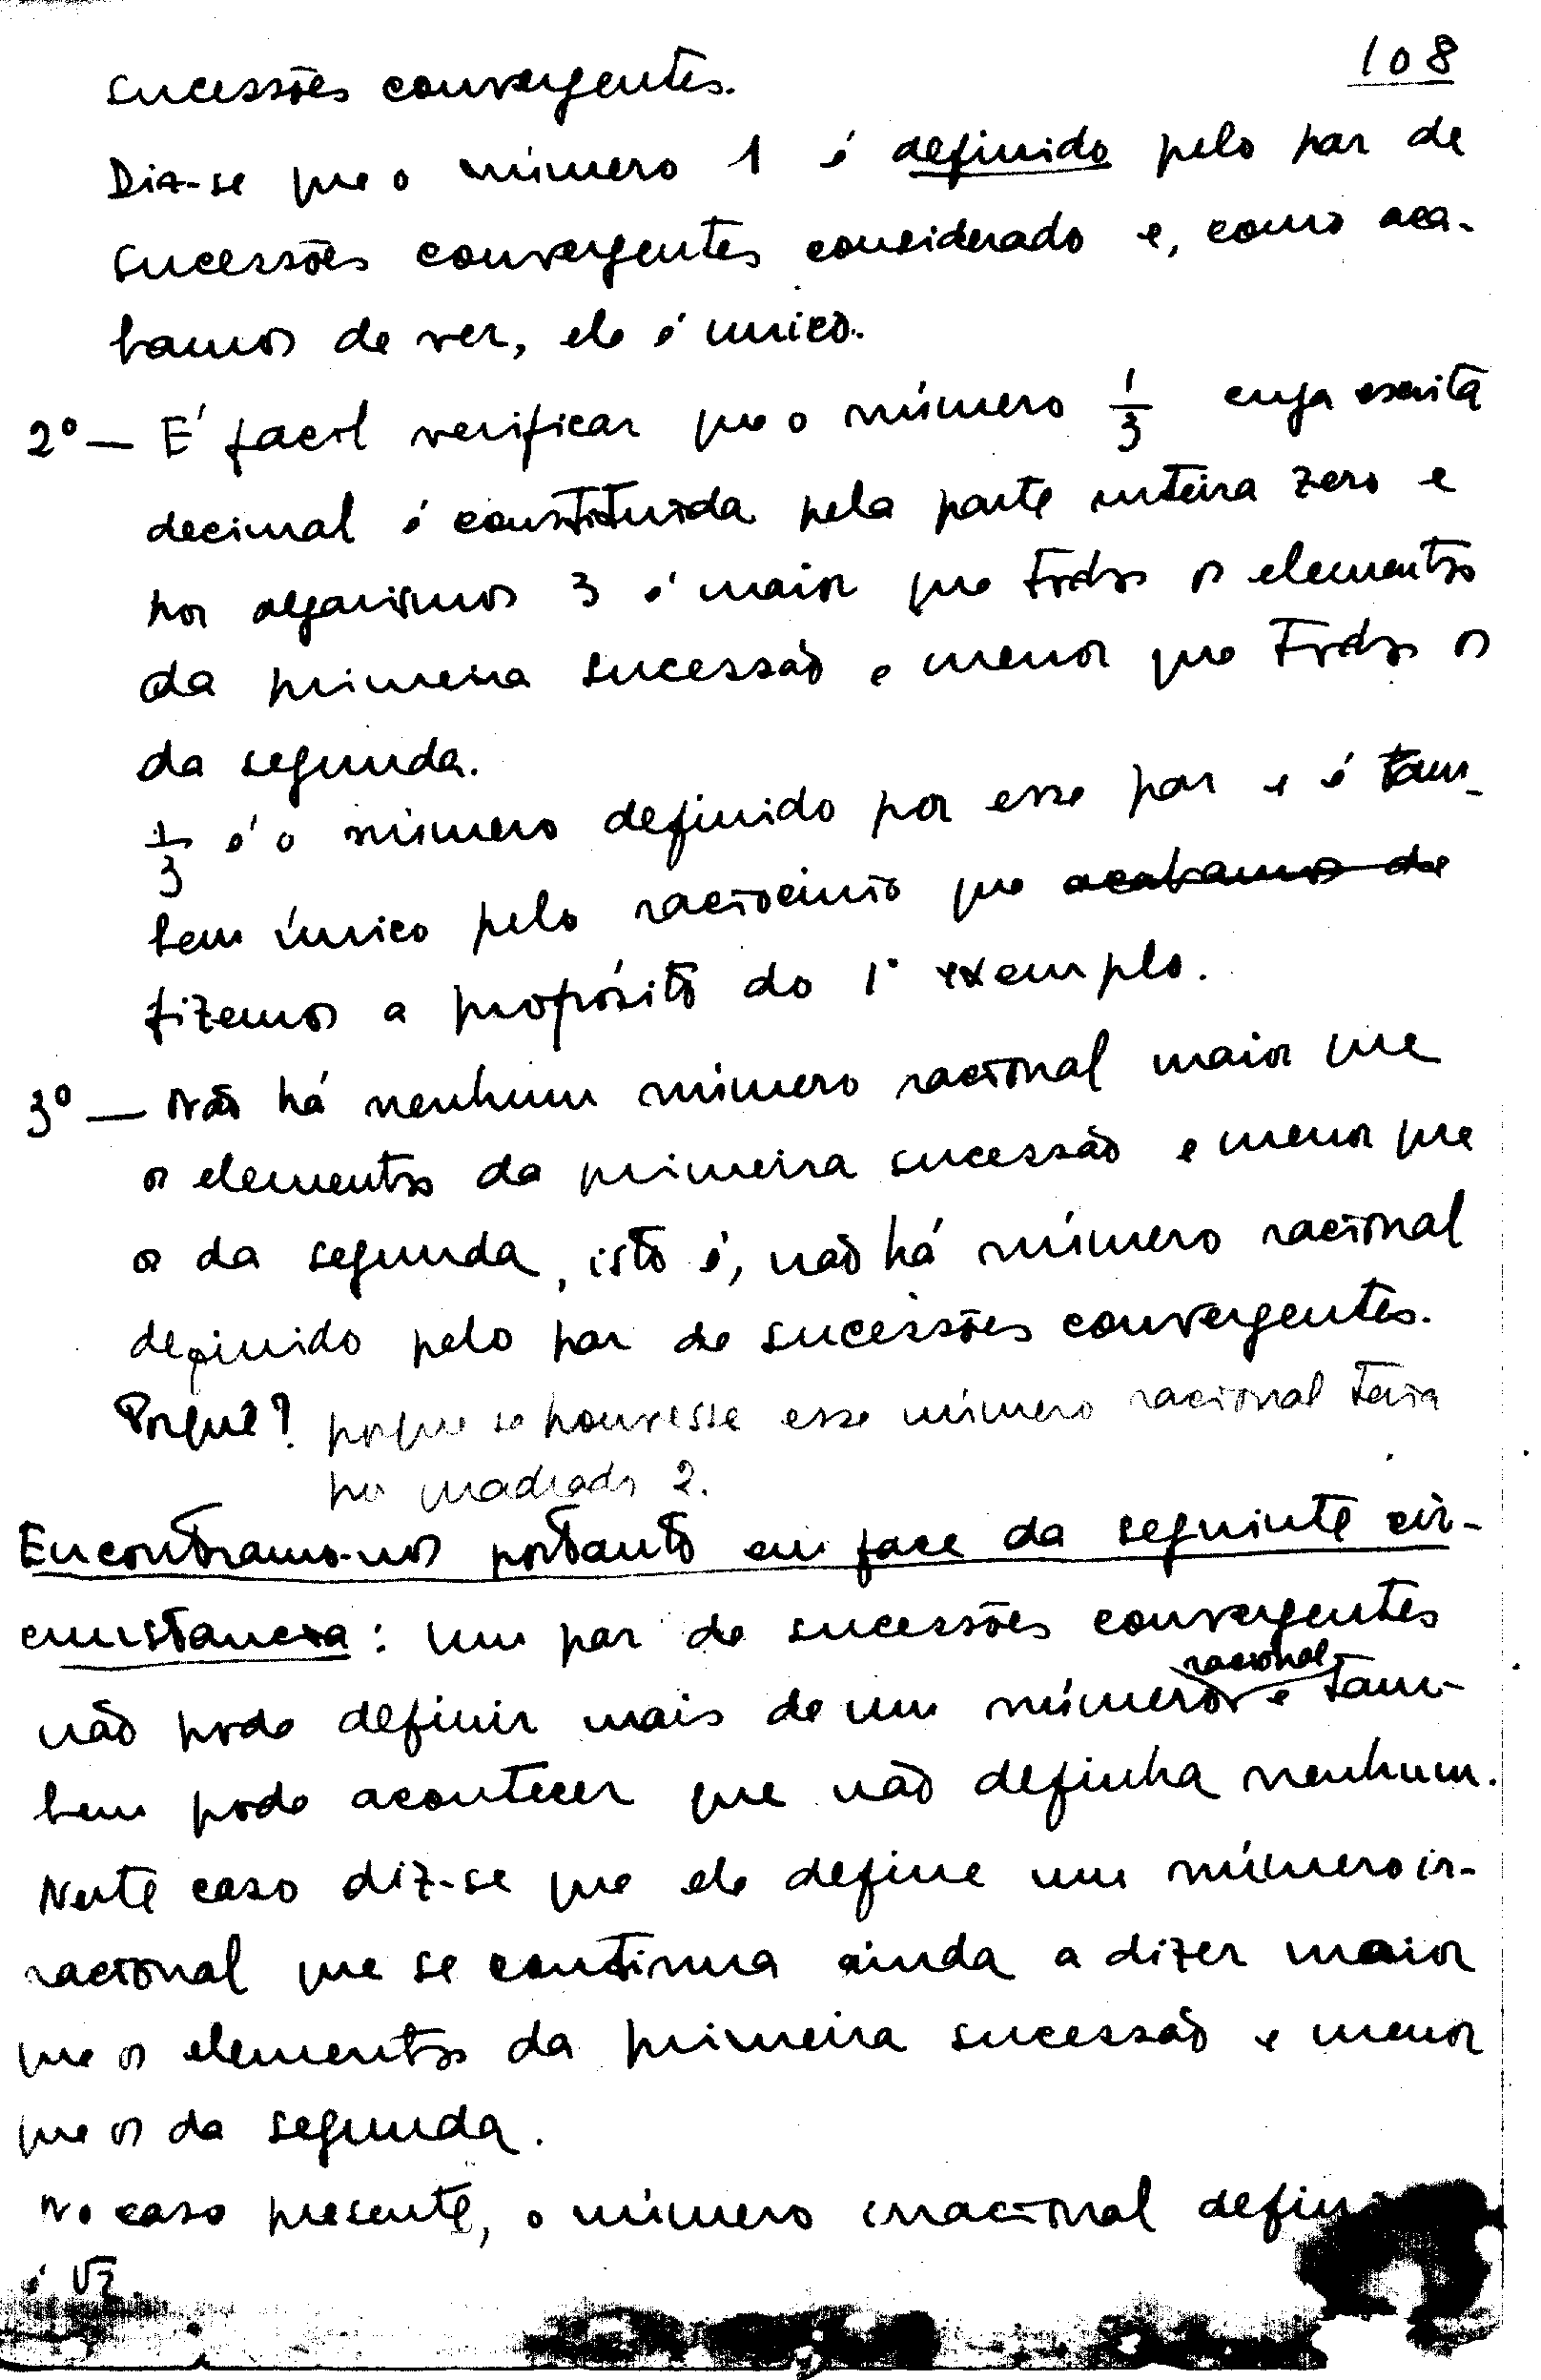 108
sucessões convergentes.
Diz-se que o número 1 é definido pelo par de
sucessões convergentes considerado e, como aca-
bamos de ver, ele é unico.
2º — É facil verificar que o número 1/3 cuja escrita
decimal é constituida pela parte inteira zero e
por algarismos 3 é maior que todos os elementos
da primeira sucessão e menor que todos os
da segunda.
1/3 é o número definido por esse par e é tam-
bem único pelo raciocinio que acabamos de
fizemos a propósito do 1º exemplo.
3º — Não há nenhum número racional maior que
os elementos da primeira sucessão e menor que
os da segunda, isto é, não há número racional
definido pelo par de sucessões convergentes.
Porquê? porque se houvesse esse número racional teria
por quadrado 2.
Encontramo-nos portanto em face da seguinte cir-
cunstancia: um par de sucessões convergentes
racional
não pode definir mais de um número e tam-
bem pode acontecer que não definha nenhum.
Neste caso diz-se que ele define um número ir-
racional que se continua ainda a dizer maior
que os elementos da primeira sucessão e menor
que os da segunda.
No caso presente, o número irracional
é √2.